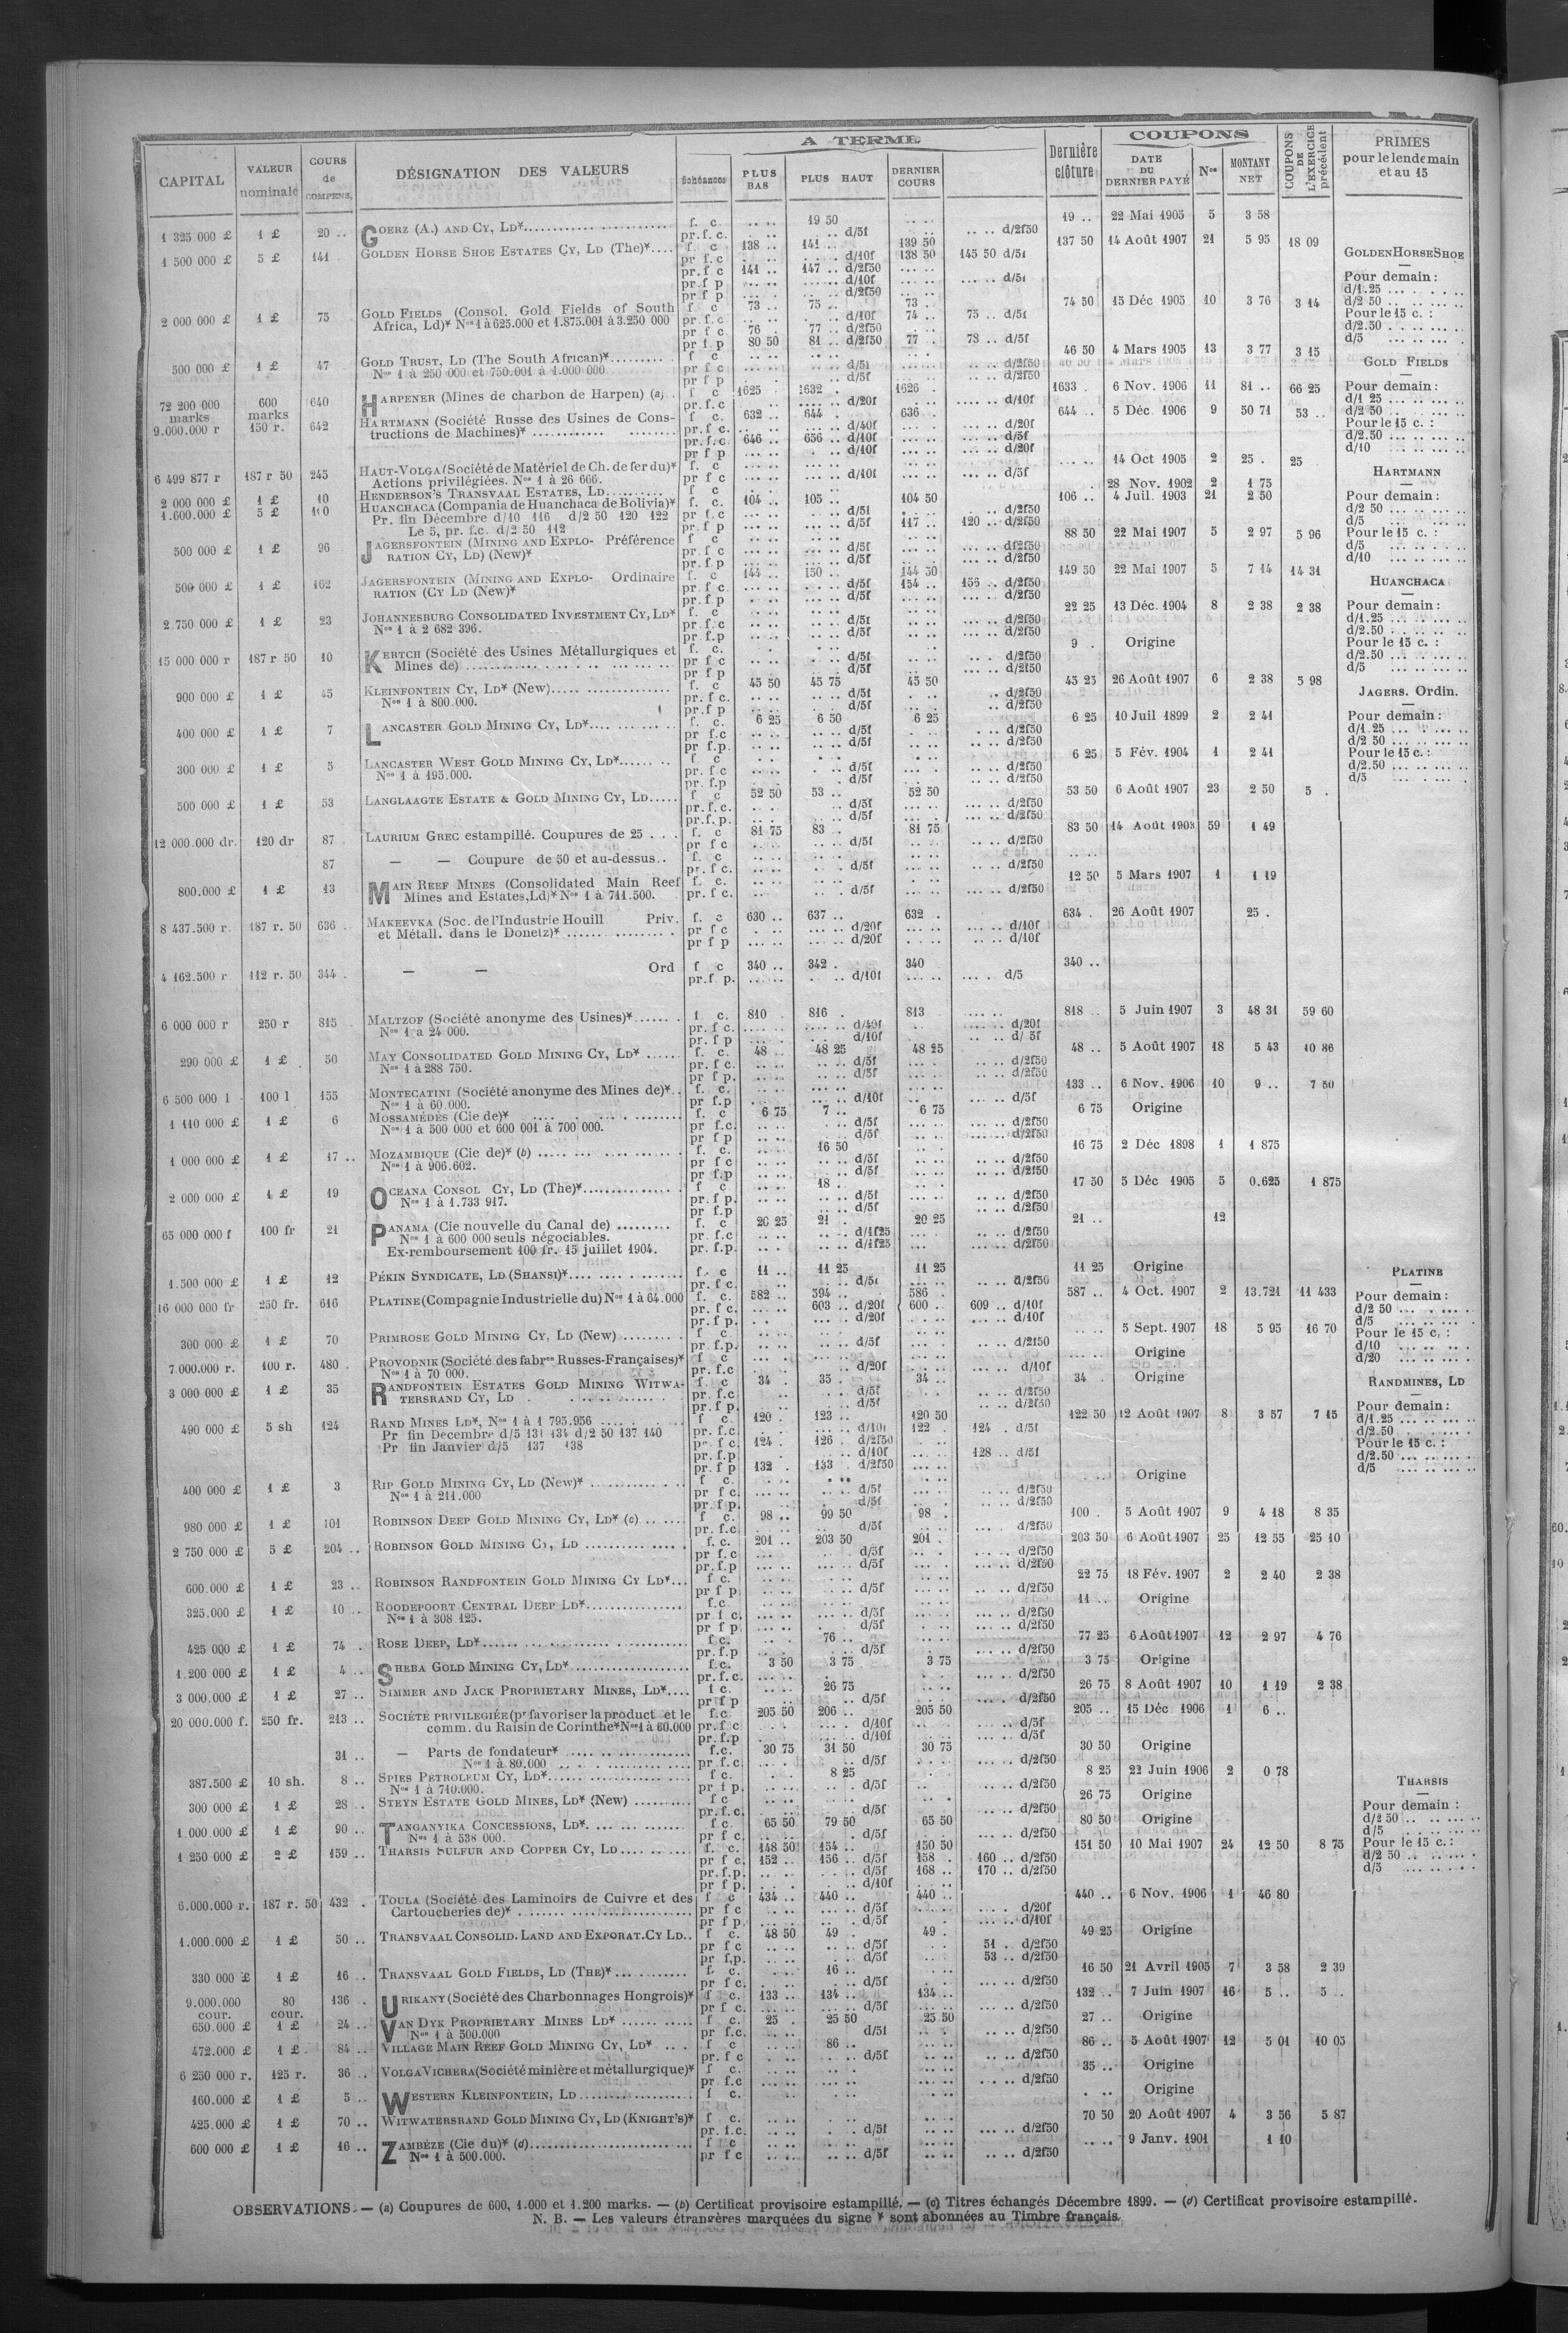 CAPITAL | VALEUR nominale | COURS de COMPENS. | DÉSIGNATION DES VALEURS | A TERME | échéances | PLUS BAS | PLUS HAUT | DERNIER COURS | Dernière clôture | COUPONS | DATE DU DERNIER PAYÉ | Nos | MONTANT NET | COUPONS DE L'EXERCICE précédent | PRIMES pour le lendemain et au 15
1 325 000 £ | 1 £ | 20 .. | GOERZ (A.) AND CY, LD* | f. c. | 19 50 | 19 .. | 22 Mai 1905 | 5 | 3 58
pr. f. c. | d/5f | d/2f50
1 500 000 £ | 5 £ | 141 | GOLDEN HORSE SHOE ESTATES CY, LD (The)* | f c | 138 .. | 141 .. | 139 50 | 137 50 | 14 Août 1907 | 21 | 5 95 | 18 09
pr f c | d/10f | 138 50 | 145 50 d/5f
pr. f c | 141 .. | 147 .. d/2f50
pr f p | d/10f | d/5f
pr f p | d/2f50
2 000 000 £ | 1 £ | 75 | GOLD FIELDS (Consol. Gold Fields of South | f c | 73 .. | 75 .. | 73 . | 74 50 | 15 Déc 1905 | 10 | 3 76 | 3 14
Africa, Ld)* Nos 1 à 625.000 et 1.875.001 à 3.250 000 | pr. f. c | d/10f | 74 .. | 75 .. d/5f
pr f c | 76 . | 77 .. d/2f50
pr f. p | 80 50 | 81 .. d/2f50 | 77 . | 78 .. d/5f
500 000 £ | 1 £ | 47 | GOLD TRUST, LD (The South African)* | f c | 46 50 | 4 Mars 1905 | 13 | 3 77 | 3 15
Nos 1 à 250 000 et 750.001 à 1.000 000 | pr f c | d/5f | d/2f50
pr f p | d/5f | d/2f50
72 200 000 marks | 600 marks | 640 | HARPENER (Mines de charbon de Harpen) (a) | f c | 1625 | 1632 . | 1626 . | 1633 . | 6 Nov. 1906 | 11 | 81 .. | 66 25
pr. f. c | d/20f | d/10f
9.000.000 r | 150 r. | 642 | HARTMANN (Société Russe des Usines de Cons- | f c. | 632 .. | 644 . | 636 . | 644 .. | 5 Déc. 1906 | 9 | 50 71 | 53 ..
tructions de Machines)* | pr. f c. | d/40f | d/20f
pr. f. c | 646 .. | 656 .. d/10f | d/5f
pr f p | d/10f | d/20f
6 499 877 r | 187 r 50 | 245 | HAUT-VOLGA (Société de Matériel de Ch. de fer du)* | f. c | 14 Oct 1905 | 2 | 25 . | 25
Actions privilégiées. Nos 1 à 26 666. | pr f c | d/10f | d/5f
2 000 000 £ | 1 £ | 10 | HENDERSON'S TRANSVAAL ESTATES, LD | f c | 28 Nov. 1902 | 2 | 1 75
1.600.000 £ | 5 £ | 110 | HUANCHACA (Compania de Huanchaca de Bolivia)* | f. c. | 104 .. | 105 .. | 104 50 | 106 .. | 4 Juil. 1903 | 21 | 2 50
Pr. fin Décembre d/10 116 d/2 50 120 122 | pr f. c | d/5f | d/2f50
Le 5, pr. f.c. d/2 50 112 | pr. f p | d/5f | 117 .. | 120 .. d/2f50
500 000 £ | 1 £ | 96 | JAGERSFONTEIN (MINING AND EXPLO- Préférence | f c | 88 50 | 22 Mai 1907 | 5 | 2 97 | 5 96
RATION CY, LD) (New)* | pr f c | d/5f | d/2f50
pr. f p | d/5f | d/2f50
500 000 £ | 1 £ | 162 | JAGERSFONTEIN (MINING AND EXPLO- Ordinaire | f. c | 144 .. | 150 .. | 144 50 | 149 50 | 22 Mai 1907 | 5 | 7 14 | 14 31
RATION (CY LD (New)* | pr f c. | d/5f | 154 .. | 156 .. d/2f50
pr. f. p | d/5f | d/2f50
2.750 000 £ | 1 £ | 23 | JOHANNESBURG CONSOLIDATED INVESTMENT CY, LD* | f. c | 22 25 | 13 Déc. 1904 | 8 | 2 38 | 2 38
Nos 1 à 2 682 396. | pr. f. c | d/5f | d/2f50
pr. f. p | d/5f | d/2f50
15 000 000 r | 187 r 50 | 10 | KERTCH (Société des Usines Métallurgiques et | f. c. | 9 . | Origine
Mines de) | pr f c | d/5f | d/2f50
pr f p | d/5f | d/2f50
900 000 £ | 1 £ | 45 | KLEINFONTEIN CY, LD* (New) | f. c | 45 50 | 45 75 | 45 50 | 45 25 | 26 Août 1907 | 6 | 2 38 | 5 98
Nos 1 à 800.000. | pr. f c. | d/5f | d/2f50
pr. f p | d/5f | d/2f50
400 000 £ | 1 £ | 7 | LANCASTER GOLD MINING CY, LD* | f. c. | 6 25 | 6 50 | 6 25 | 6 25 | 10 Juil 1899 | 2 | 2 41
pr f. c | d/5f | d/2f50
pr f. p. | d/5f | d/2f50
300 000 £ | 1 £ | 5 | LANCASTER WEST GOLD MINING CY, LD* | f c | 6 25 | 5 Fév. 1904 | 1 | 2 41
Nos 1 à 495.000. | pr. f. c | d/5f | d/2f50
pr. f. p | d/5f | d/2f50
500 000 £ | 1 £ | 53 | LANGLAAGTE ESTATE & GOLD MINING CY, LD | f c | 52 50 | 53 .. | 52 50 | 53 50 | 6 Août 1907 | 23 | 2 50 | 5 .
pr. f. c. | d/5f | d/2f50
pr. f. p. | d/5f | d/2f50
12.000.000 dr. | 120 dr | 87 . | LAURIUM GREC estampillé. Coupures de 25 | f. c | 81 75 | 83 . | 81 75 | 83 50 | 14 Août 1903 | 59 | 1 49
pr f c | d/5f | d/2f50
87 | — — Coupure de 50 et au-dessus | f. c
pr. f c. | d/5f | d/2f50
800.000 £ | 1 £ | 13 | MAIN REEF MINES (Consolidated Main Reef | f. c. | 12 50 | 5 Mars 1907 | 1 | 1 19
Mines and Estates, Ld)* Nos 1 à 711.500. | pr. f c. | d/5f | d/2f50
8 437.500 r. | 187 r. 50 | 636 . | MAKEEVKA (Soc. de l'Industrie Houill Priv. | f. c | 630 .. | 637 .. | 632 . | 634 . | 26 Août 1907 | 25 .
et Métall. dans le Donetz)* | pr f c | d/20f | d/10f
pr f p | d/20f | d/10f
4 162.500 r | 112 r. 50 | 344 . | — — Ord | f c | 340 .. | 342 . | 340 | 340 ..
pr. f. p. | d/10f | d/5
6 000 000 r | 250 r | 815 | MALTZOF (Société anonyme des Usines)* | f c. | 810 . | 816 . | 813 | 818 .. | 5 Juin 1907 | 3 | 48 31 | 59 60
Nos 1 à 24 000. | pr. f c. | d/40f | d/20f
pr. f p | d/10f | d/ 5f
290 000 £ | 1 £ | 50 | MAY CONSOLIDATED GOLD MINING CY, LD* | f. c. | 48 .. | 48 25 | 48 25 | 48 .. | 5 Août 1907 | 18 | 5 43 | 10 86
Nos 1 à 288 750. | pr. f c. | d/5f | d/2f50
pr f p. | d/5f | d/2f50
6 500 000 l | 100 l | 155 | MONTECATINI (Société anonyme des Mines de)* | f c. | 133 .. | 6 Nov. 1906 | 10 | 9 .. | 7 50
Nos 1 à 60.000. | pr. f. p | d/10f | d/5f
1 110 000 £ | 1 £ | 6 | MOSSAMÉDÈS (Cie de)* | f. c | 6 75 | 7 .. | 6 75 | 6 75 | Origine
Nos 1 à 500 000 et 600 001 à 700 000. | pr f. c. | d/5f | d/2f50
pr f p | d/5f | d/2f50
1 000 000 £ | 1 £ | 17 .. | MOZAMBIQUE (Cie de)* (b) | f. c. | 16 50 | 16 75 | 2 Déc 1898 | 1 | 1 875
Nos 1 à 906.602. | pr f c | d/5f | d/2f50
pr f. p | d/5f | d/2f50
2 000 000 £ | 1 £ | 19 | OCEANA CONSOL CY, LD (The)* | f c | 18 .. | 17 50 | 5 Déc 1905 | 5 | 0.625 | 1 875
Nos 1 à 1.733 917. | pr. f p. | d/5f | d/2f50
pr. f. p | d/5f | d/2f50
65 000 000 f | 100 fr | 21 | PANAMA (Cie nouvelle du Canal de) | f. c | 20 25 | 21 . | 20 25 | 21 .. | 12
Nos 1 à 600 000 seuls négociables. | pr. f. c | d/1f25 | d/2f50
Ex-remboursement 100 fr. 15 juillet 1904. | pr. f. p. | d/1f25 | d/2f50
1.500 000 £ | 1 £ | 12 | PÉKIN SYNDICATE, LD (SHANSI)* | f. c | 11 .. | 11 25 | 11 25 | 11 25 | Origine
pr. f c. | d/5f | d/2f50
16 000 000 fr | 250 fr. | 616 | PLATINE (Compagnie Industrielle du) Nos 1 à 64.000 | f. c. | 582 .. | 594 .. | 586 . | 587 .. | 4 Oct. 1907 | 2 | 13.721 | 11 433
pr. f c. | 603 .. d/20f | 600 .. | 609 .. d/10f
pr. f p. | d/20f | d/10f
300 000 £ | 1 £ | 70 | PRIMROSE GOLD MINING CY, LD (New) | f c | 5 Sept. 1907 | 18 | 5 95 | 16 70
pr. f. p. | d/5f | d/2f50
7.000.000 r. | 100 r. | 480 . | PROVODNIK (Société des fabres Russes-Françaises)* | f c | Origine
Nos 1 à 70 000. | pr. f. c | d/20f | d/10f
3 000 000 £ | 1 £ | 35 | RANDFONTEIN ESTATES GOLD MINING WITWA- | f. c | 34 . | 35 . | 34 .. | 34 . | Origine
TERSRAND CY, LD | pr. f. c | d/5f | d/2f50
pr. f p. | d/5f | d/2f50
490 000 £ | 5 sh | 124 | RAND MINES LD*, Nos 1 à 1 795.956 | f c. | 120 . | 123 .. | 120 50 | 122 50 | 12 Août 1907 | 8 | 3 57 | 7 15
Pr fin Decembre d/5 131 134 d/2 50 137 140 | pr. f. c | d/10f | 122 . | 124 . d/5f
Pr fin Janvier d/5 137 138 | pr. f c. | 124 . | 126 . d/2f50
pr. f. p | d/10f | 128 .. d/5f
pr. f p | 132 . | 133 . d/2f50
400 000 £ | 1 £ | 3 | RIP GOLD MINING CY, LD (New)* | f c. | Origine
Nos 1 à 211.000 | pr f c. | d/5f | d/2f50
pr. f p. | d/5f | d/2f50
980 000 £ | 1 £ | 101 | ROBINSON DEEP GOLD MINING CY, LD* (c) | f c. | 98 .. | 99 50 | 98 . | 100 . | 5 Août 1907 | 9 | 4 18 | 8 35
pr. f. c | d/5f | d/2f50
2 750 000 £ | 5 £ | 204 .. | ROBINSON GOLD MINING CY, LD | f. c. | 201 .. | 203 50 | 201 . | 203 50 | 6 Août 1907 | 25 | 12 55 | 25 10
pr f. c | d/5f | d/2f50
pr. f. p | d/5f | d/2f50
600.000 £ | 1 £ | 23 .. | ROBINSON RANDFONTEIN GOLD MINING CY LD* | f c. | 22 75 | 18 Fév. 1907 | 2 | 2 40 | 2 38
pr f p | d/5f | d/2f50
325.000 £ | 1 £ | 10 .. | ROODEPOORT CENTRAL DEEP LD* | f. c | 11 .. | Origine
Nos 1 à 308 125. | pr f c. | d/5f | d/2f50
pr f p. | d/5f | d/2f50
425 000 £ | 1 £ | 74 . | ROSE DEEP, LD* | f c. | 76 .. | 77 25 | 6 Août 1907 | 12 | 2 97 | 4 76
pr. f. p | d/5f | d/2f50
1.200 000 £ | 1 £ | 4 .. | SHEBA GOLD MINING CY, LD* | f. c. | 3 50 | 3 75 | 3 75 | 3 75 | Origine
pr. f. c. | d/2f50
3 000.000 £ | 1 £ | 27 .. | SIMMER AND JACK PROPRIETARY MINES, LD* | f c. | 26 75 | 26 75 | 8 Août 1907 | 10 | 1 19 | 2 38
pr f p | d/5f | d/2f50
20 000.000 f. | 250 fr. | 213 .. | SOCIÉTÉ PRIVILEGIÉE (pr favoriser la product et le | f. c | 205 50 | 206 .. | 205 50 | 205 .. | 15 Déc 1906 | 1 | 6 ..
comm. du Raisin de Corinthe* Nos 1 à 60.000 | pr. f c | d/10f | d/5f
pr. f. p | d/10f | d/5f
31 .. | — Parts de fondateur* | f. c. | 30 75 | 31 50 | 30 75 | 30 50 | Origine
Nos 1 à 80.000 | pr. f. c. | d/5f | d/2f50
387.500 £ | 10 sh. | 8 .. | SPIES PETROLEUM CY, LD* | f c. | 8 25 | 8 25 | 22 Juin 1906 | 2 | 0 78
Nos 1 à 710.000. | pr f p. | d/5f | d/2f50
300 000 £ | 1 £ | 28 .. | STEYN ESTATE GOLD MINES, LD* (New) | f c | 26 75 | Origine
pr. f. c. | d/5f | d/2f50
1.000.000 £ | 1 £ | 90 .. | TANGANYIKA CONCESSIONS, LD* | f. c. | 65 50 | 79 50 | 65 50 | 80 50 | Origine
Nos 1 à 538 000. | pr f c. | d/5f | d/2f50
1 250 000 £ | 2 £ | 159 .. | THARSIS SULFUR AND COPPER CY, LD | f. c. | 148 50 | 154 .. | 150 50 | 151 50 | 10 Mai 1907 | 24 | 12 50 | 8 75
pr f c. | 152 .. | 156 .. d/5f | 158 . | 160 .. d/2f50
pr. f. p. | d/5f | 168 .. | 170 .. d/2f50
pr f p. | d/10f
6.000.000 r. | 187 r. 50 | 432 . | TOULA (Société des Laminoirs de Cuivre et des | f c | 434 .. | 440 .. | 440 .. | 440 .. | 6 Nov. 1906 | 1 | 46 80
Cartoucheries de)* | pr f c | d/5f | d/20f
pr f p. | d/5f | d/10f
1.000.000 £ | 1 £ | 50 .. | TRANSVAAL CONSOLID. LAND AND EXPORAT. CY LD | f c. | 48 50 | 49 . | 49 . | 49 25 | Origine
pr f c | d/5f | 51 . d/2f50
pr f. p. | d/5f | 53 .. d/2f50
330 000 £ | 1 £ | 16 .. | TRANSVAAL GOLD FIELDS, LD (THE)* | f. c. | 16 .. | 16 50 | 21 Avril 1905 | 7 | 3 58 | 2 39
pr f c. | d/5f | d/2f50
9.000.000 cour. | 80 cour. | 136 . | URIKANY (Société des Charbonnages Hongrois)* | f c. | 133 .. | 134 .. | 134 .. | 132 .. | 7 Juin 1907 | 16 | 5 .. | 5 ..
pr f c. | d/5f | d/2f50
650.000 £ | 1 £ | 24 .. | VAN DYK PROPRIETARY MINES LD* | f c. | 25 . | 25 50 | 25 50 | 27 .. | Origine
Nos 1 à 500.000 | pr f. c. | d/5f | d/2f50
472.000 £ | 1 £ | 84 .. | VILLAGE MAIN REEF GOLD MINING CY, LD* | f c | 86 .. | 86 .. | 5 Août 1907 | 12 | 5 01 | 10 05
pr. f c | d/5f | d/2f50
6 250 000 r. | 125 r. | 36 .. | VOLGA VICHERA (Société minière et métallurgique)* | f c. | 35 .. | Origine
pr f. c | d/2f50
160.000 £ | 1 £ | 5 .. | WESTERN KLEINFONTEIN, LD | f c. | Origine
425.000 £ | 1 £ | 70 .. | WITWATERSRAND GOLD MINING CY, LD (KNIGHT'S)* | f c. | 70 50 | 20 Août 1907 | 4 | 3 56 | 5 87
pr. f. c. | d/5f | d/2f50
600 000 £ | 1 £ | 16 .. | ZAMBÈZE (Cie du)* (d) | f c | 9 Janv. 1901 | 1 10
Nos 1 à 500.000. | pr f c | d/5f | d/2f50
GOLDEN HORSE SHOE
Pour demain :
d/1.25
d/2 50
Pour le 15 c. :
d/2.50
d/5
GOLD FIELDS
Pour demain :
d/1 25
d/2 50
Pour le 15 c. :
d/2.50
d/10
HARTMANN
Pour demain :
d/2 50
d/5
Pour le 15 c. :
d/5
d/10
HUANCHACA
Pour demain :
d/1.25
d/2.50
Pour le 15 c. :
d/2.50
d/5
JAGERS. Ordin.
Pour demain :
d/1 25
d/2 50
Pour le 15 c. :
d/2.50
d/5
PLATINE
Pour demain :
d/2 50
d/5
Pour le 15 c. :
d/10
d/20
RANDMINES, LD
Pour demain :
d/1.25
d/2.50
Pour le 15 c. :
d/2.50
d/5
THARSIS
Pour demain :
d/2 50
d/5
Pour le 15 c. :
d/2 50
d/5
OBSERVATIONS. — (a) Coupures de 600, 1.000 et 1.200 marks. — (b) Certificat provisoire estampillé. — (c) Titres échangés Décembre 1899. — (d) Certificat provisoire estampillé.
N. B. — Les valeurs étrangères marquées du signe * sont abonnées au Timbre français.